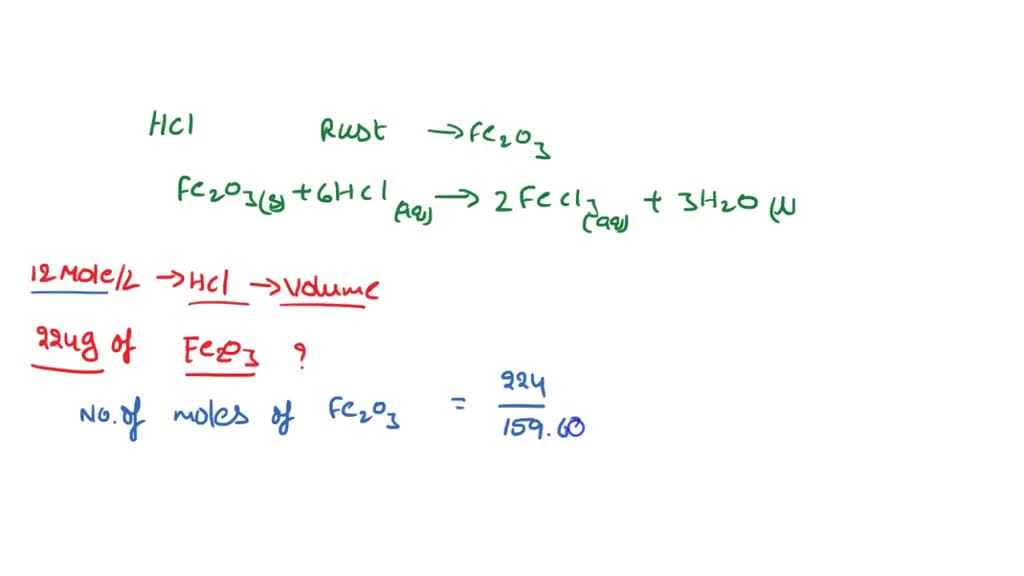 HCl Rust → Fe2O3
Fe2O3(s) + 6HCl(aq) → 2FeCl3(aq) + 3H2O(l)
12 Mole/L → HCl → Volume
224g of Fe2O3 ?
No. of moles of Fe2O3 = 224/159.60